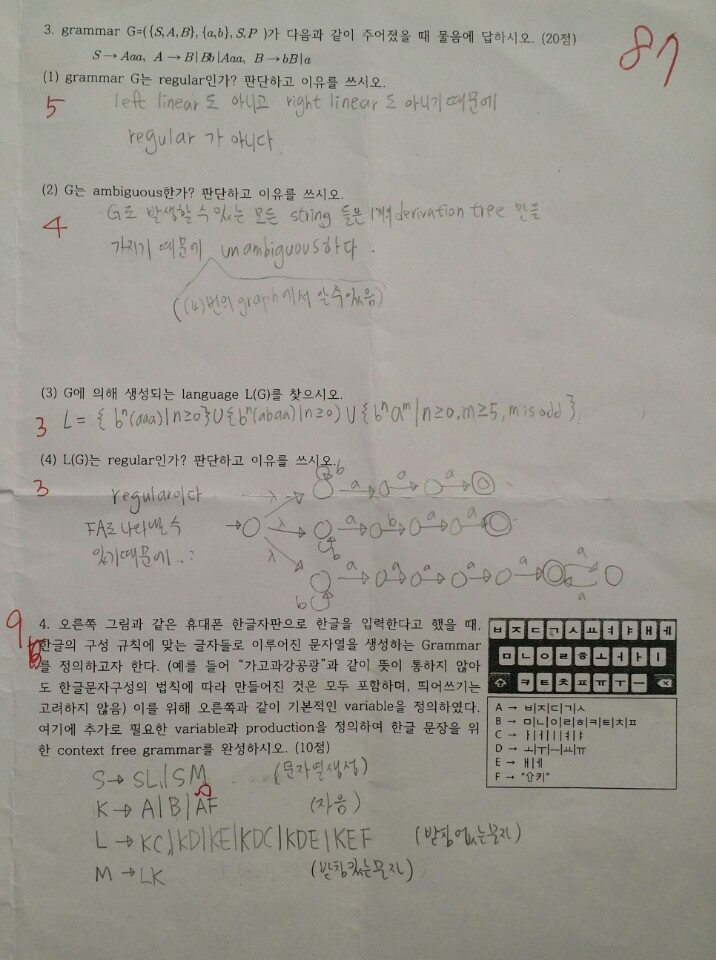 3. grammar G=({S,A,B}, {a,b}, S,P )가 다음과 같이 주어졌을 때 물음에 답하시오. (20점)
87
S → Aaa, A → B|Bb|Aaa, B → bB|a
(1) grammar G는 regular인가? 판단하고 이유를 쓰시오.
5
left linear도 아니고 right linear도 아니기 때문에
regular가 아니다.
(2) G는 ambiguous한가? 판단하고 이유를 쓰시오.
4
G로 발생할 수 있는 모든 string 들은 1개의 derivation tree 만을
가지기 때문에 unambiguous하다.
((4)번의 graph에서 알 수 있음)
(3) G에 의해 생성되는 language L(G)를 찾으시오.
3
L = {bⁿ(aaa)|n≥0}U{bⁿ(abaa)|n≥0} U {bⁿaᵐ|n≥0, m≥5, m is odd}
(4) L(G)는 regular인가? 판단하고 이유를 쓰시오.
3
regular이다
FA로 나타낼 수
있기때문에..:
λ b a a a
λ b a b a a
λ b a a a a a a a
9
4. 오른쪽 그림과 같은 휴대폰 한글자판으로 한글을 입력한다고 했을 때,
한글의 구성 규칙에 맞는 글자들로 이루어진 문자열을 생성하는 Grammar
를 정의하고자 한다. (예를 들어 "가고과강공광"과 같이 뜻이 통하지 않아
도 한글문자구성의 법칙에 따라 만들어진 것은 모두 포함하며, 띄어쓰기는
고려하지 않음) 이를 위해 오른쪽과 같이 기본적인 variable을 정의하였다.
여기에 추가로 필요한 variable과 production을 정의하여 한글 문장을 위
한 context free grammar를 완성하시오. (10점)
ㅂ ㅈ ㄷ ㄱ ㅅ ㅛ ㅕ ㅑ ㅐ ㅔ
ㅁ ㄴ ㅇ ㄹ ㅎ ㅗ ㅓ ㅏ ㅣ
⇧ ㅋ ㅌ ㅊ ㅍ ㅠ ㅜ ㅡ
A → ㅂ|ㅈ|ㄷ|ㄱ|ㅅ
B → ㅁ|ㄴ|ㅇ|ㄹ|ㅎ|ㅋ|ㅌ|ㅊ|ㅍ
C → ㅏ|ㅓ|ㅣ|ㅕ|ㅑ
D → ㅗ|ㅜ|ㅡ|ㅛ|ㅠ
E → ㅐ|ㅔ
F → "⇧키"
S → SL|SM .... (문자열생성)
K → A|B|AF (자음)
L → KC|KD|KE|KDC|KDE|KEF (받침없는문자)
M → LK (받침있는문자)